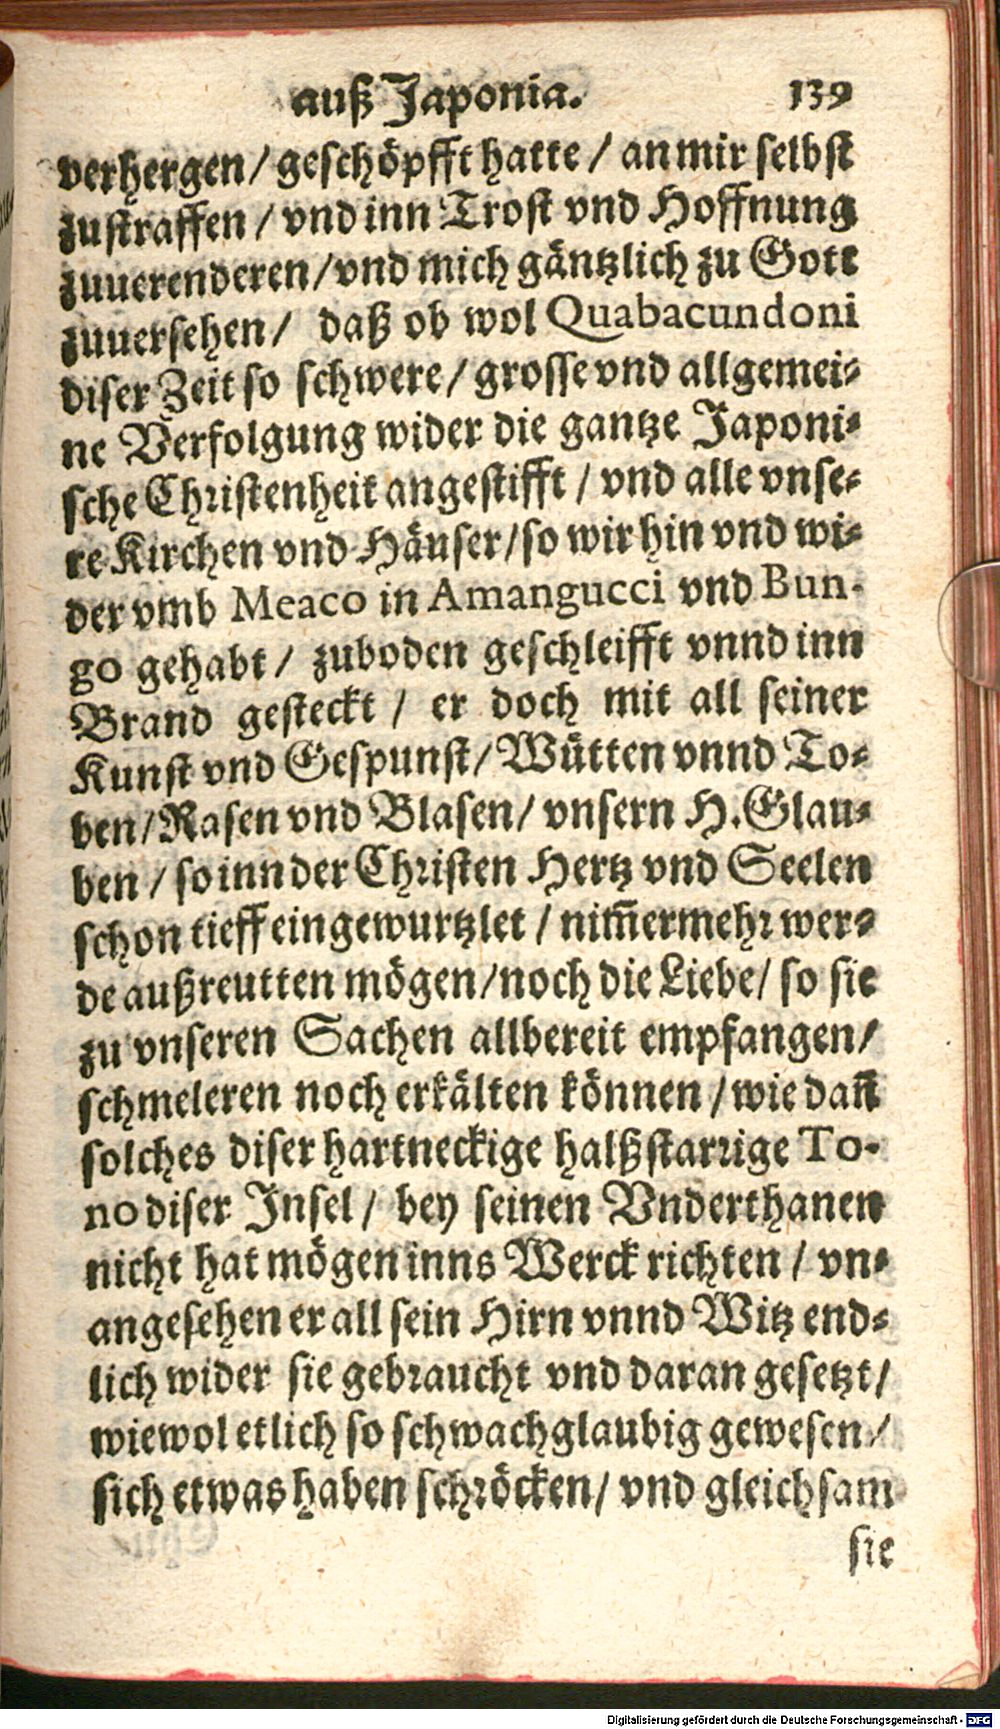 auß Japonia. 139
verhergen / geschöpfft hatte / an mir selbst
zustraffen / vnd inn Trost vnd Hoffnung
zuuerenderen / vnd mich gäntzlich zu Gott
zuuersehen / daß ob wol Quabacundoni
diser Zeit so schwere / grosse vnd allgemei-
ne Verfolgung wider die gantze Japoni-
sche Christenheit angestifft / vnd alle vnse-
re Kirchen vnd Häuser / so wir hin vnd wi-
der vmb Meaco in Amangucci vnd Bun-
go gehabt / zuboden geschleifft vnnd inn
Brand gesteckt / er doch mit all seiner
Kunst vnd Gespunst / Wütten vnnd To-
ben / Rasen vnd Blasen / vnsern H. Glau-
ben / so inn der Christen Hertz vnd Seelen
schon tieff eingewurtzlet / nim̃ermehr wer-
de außreutten mögen / noch die Liebe / so sie
zu vnseren Sachen allbereit empfangen /
schmeleren noch erkälten können / wie dañ
solches diser hartneckige halßstarrige To-
no diser Insel / bey seinen Vnderthanen
nicht hat mögen inns Werck richten / vn-
angesehen er all sein Hirn vnnd Witz end-
lich wider sie gebraucht vnd daran gesetzt /
wiewol etlich so schwachglaubig gewesen /
sich etwas haben schröcken / vnd gleichsam
sie
Digitalisierung gefördert durch die Deutsche Forschungsgemeinschaft - DFG